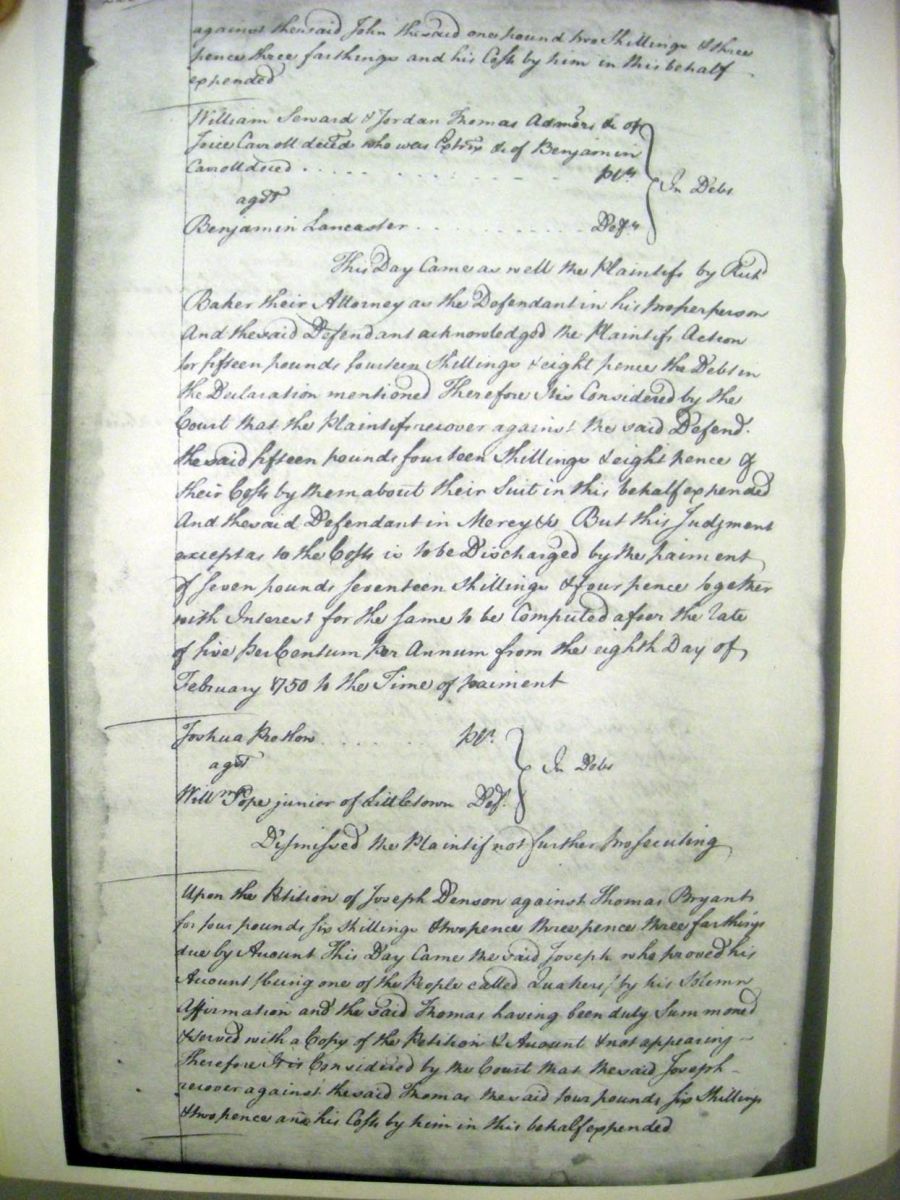 against the said John the said one pound two Shillings & three
pence three farthings and his Costs by him in this behalf
expended
William Seward & Jordan Thomas Admors &c of
Joice Carroll decd who was Extrix &c of Benjamin
Carroll decd . . . . . . . . . . plts
In Debt
agst
Benjamin Lancaster . . . . . . . . . . Deft
This Day Came as well the Plaintifs by Richd
Baker their Attorney as the Defendant in his proper person
And the said Defendant acknowledged the Plaintifs Action
for fifteen pounds fourteen Shillings & eight pence the Debt in
the Declaration mentioned Therefore It is Considered by the
Court that the Plaintifs recover against the said Defend.
the said fifteen pounds fourteen Shillings & eight pence &
their Costs by them about their Suit in this behalf expended
And the said Defendant in Mercy &c But this Judgment
except as to the Costs is to be Discharged by the paiment
of seven pounds seventeen Shillings & four pence together
with Interest for the same to be Computed after the rate
of five per Centum per Annum from the eighth Day of
February 1750 to the Time of paiment
Joshua . . . . . . plt.
In Debt
agst
Willm Pope junior of Littletown Def.
Dismissed the Plaintif not further prosecuting
Upon the Petition of Joseph Denson against Thomas Bryant
for four pounds six Shillings & two pence three pence three farthings
due by Account This Day Came the said Joseph who proved his
Account (being one of the People called Quakers) by his Solemn
Affirmation and the said Thomas having been duly Summoned
& served with a Copy of the Petition & Account & not appearing
Therefore It is Considered by the Court that the said Joseph
recover against the said Thomas the said four pounds six Shillings
& two pence and his Costs by him in this behalf expended